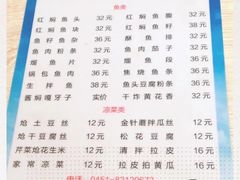 鱼类
红焖鱼头 32元 红焖鱼腹 32元
红焖鱼块 32元 红焖鱼排 32元
鱼籽鱼杂 36元 酥鱼排 32元
鱼肉粉条 32元 鱼肉茄子 32元
熘鱼片 32元 熘鱼段 32元
锅包鱼肉 36元 焦烧鱼条 36元
生拌鱼 38元 鱼头豆腐粉条 36元
酱焖嘎牙子 实价 干炸黄花香 32元
凉菜类
炝土豆丝 12元 金针蘑拌瓜丝 12元
炝干豆腐丝 12元 松花豆腐 12元
芹菜炝花生米 12元 清拌拉皮 16元
家常凉菜 12元 拉皮拍黄瓜 16元
电话